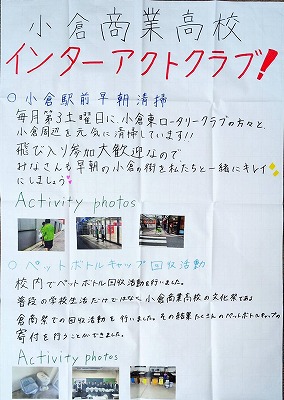 小倉商業高校
インターアクトクラブ!
○ 小倉駅前早朝清掃
毎月第3土曜日に、小倉東ロータリークラブの方々と、
小倉周辺を元気に清掃しています!!
飛び入り参加大歓迎なので
みなさんも早朝の小倉の街を私たちと一緒にキレイ
にしましょう
Activity photos
○ ペットボトルキャップ回収活動
校内でペットボトル回収活動を行いました。
普段の学校生活だけではなく、小倉商業高校の文化祭である
倉商祭での回収活動を行いました。その結果たくさんのペットボトルキャップの
寄付を行うことができました。
Activity photos